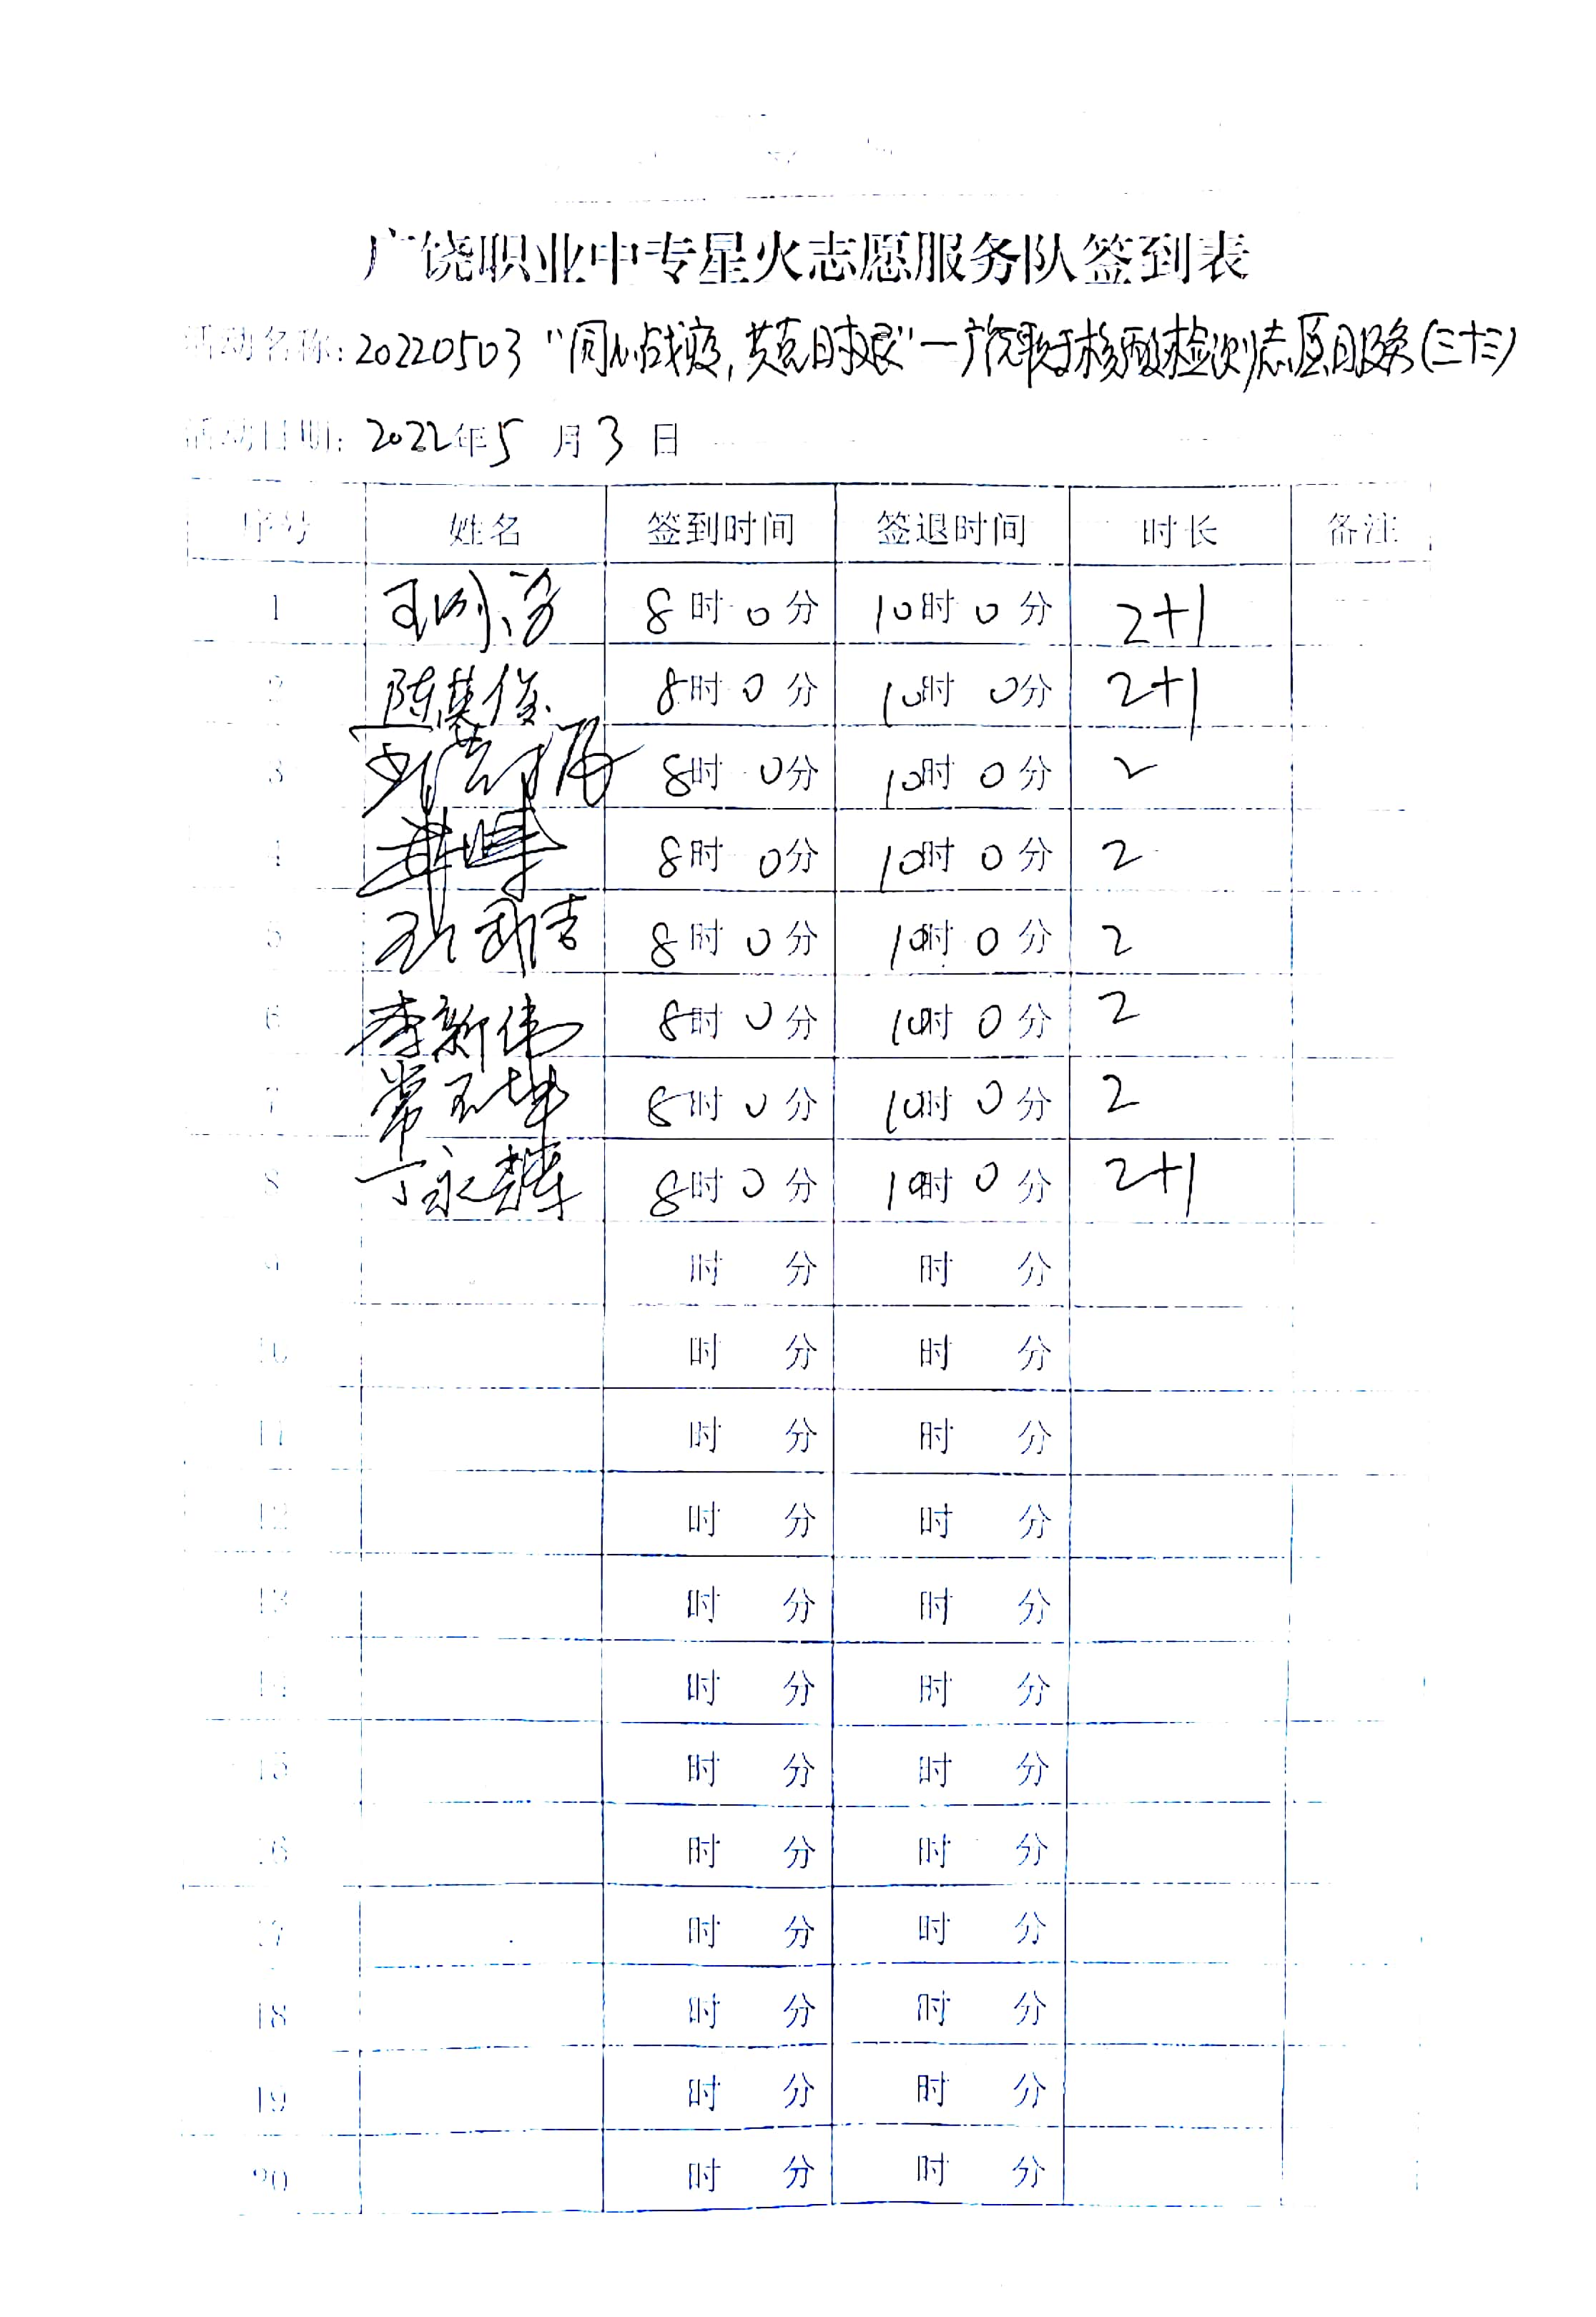 广饶职业中专星火志愿服务队签到表
活动名称：20220503 "同心战疫，共克时艰"—广饶职专核酸检测志愿服务(三十三)
活动日期：2022年5月3日
序号 姓名 签到时间 签退时间 时长 备注
1 8时0分 10时0分 2+1
2 陈英俊 8时0分 10时0分 2+1
3 8时0分 10时0分 2
4 8时0分 10时0分 2
5 8时0分 10时0分 2
6 李新伟 8时0分 10时0分 2
7 常玉坤 8时0分 10时0分 2
8 丁永 8时0分 10时0分 2+1
9 时 分 时 分
10 时 分 时 分
11 时 分 时 分
12 时 分 时 分
13 时 分 时 分
14 时 分 时 分
15 时 分 时 分
16 时 分 时 分
17 时 分 时 分
18 时 分 时 分
19 时 分 时 分
20 时 分 时 分